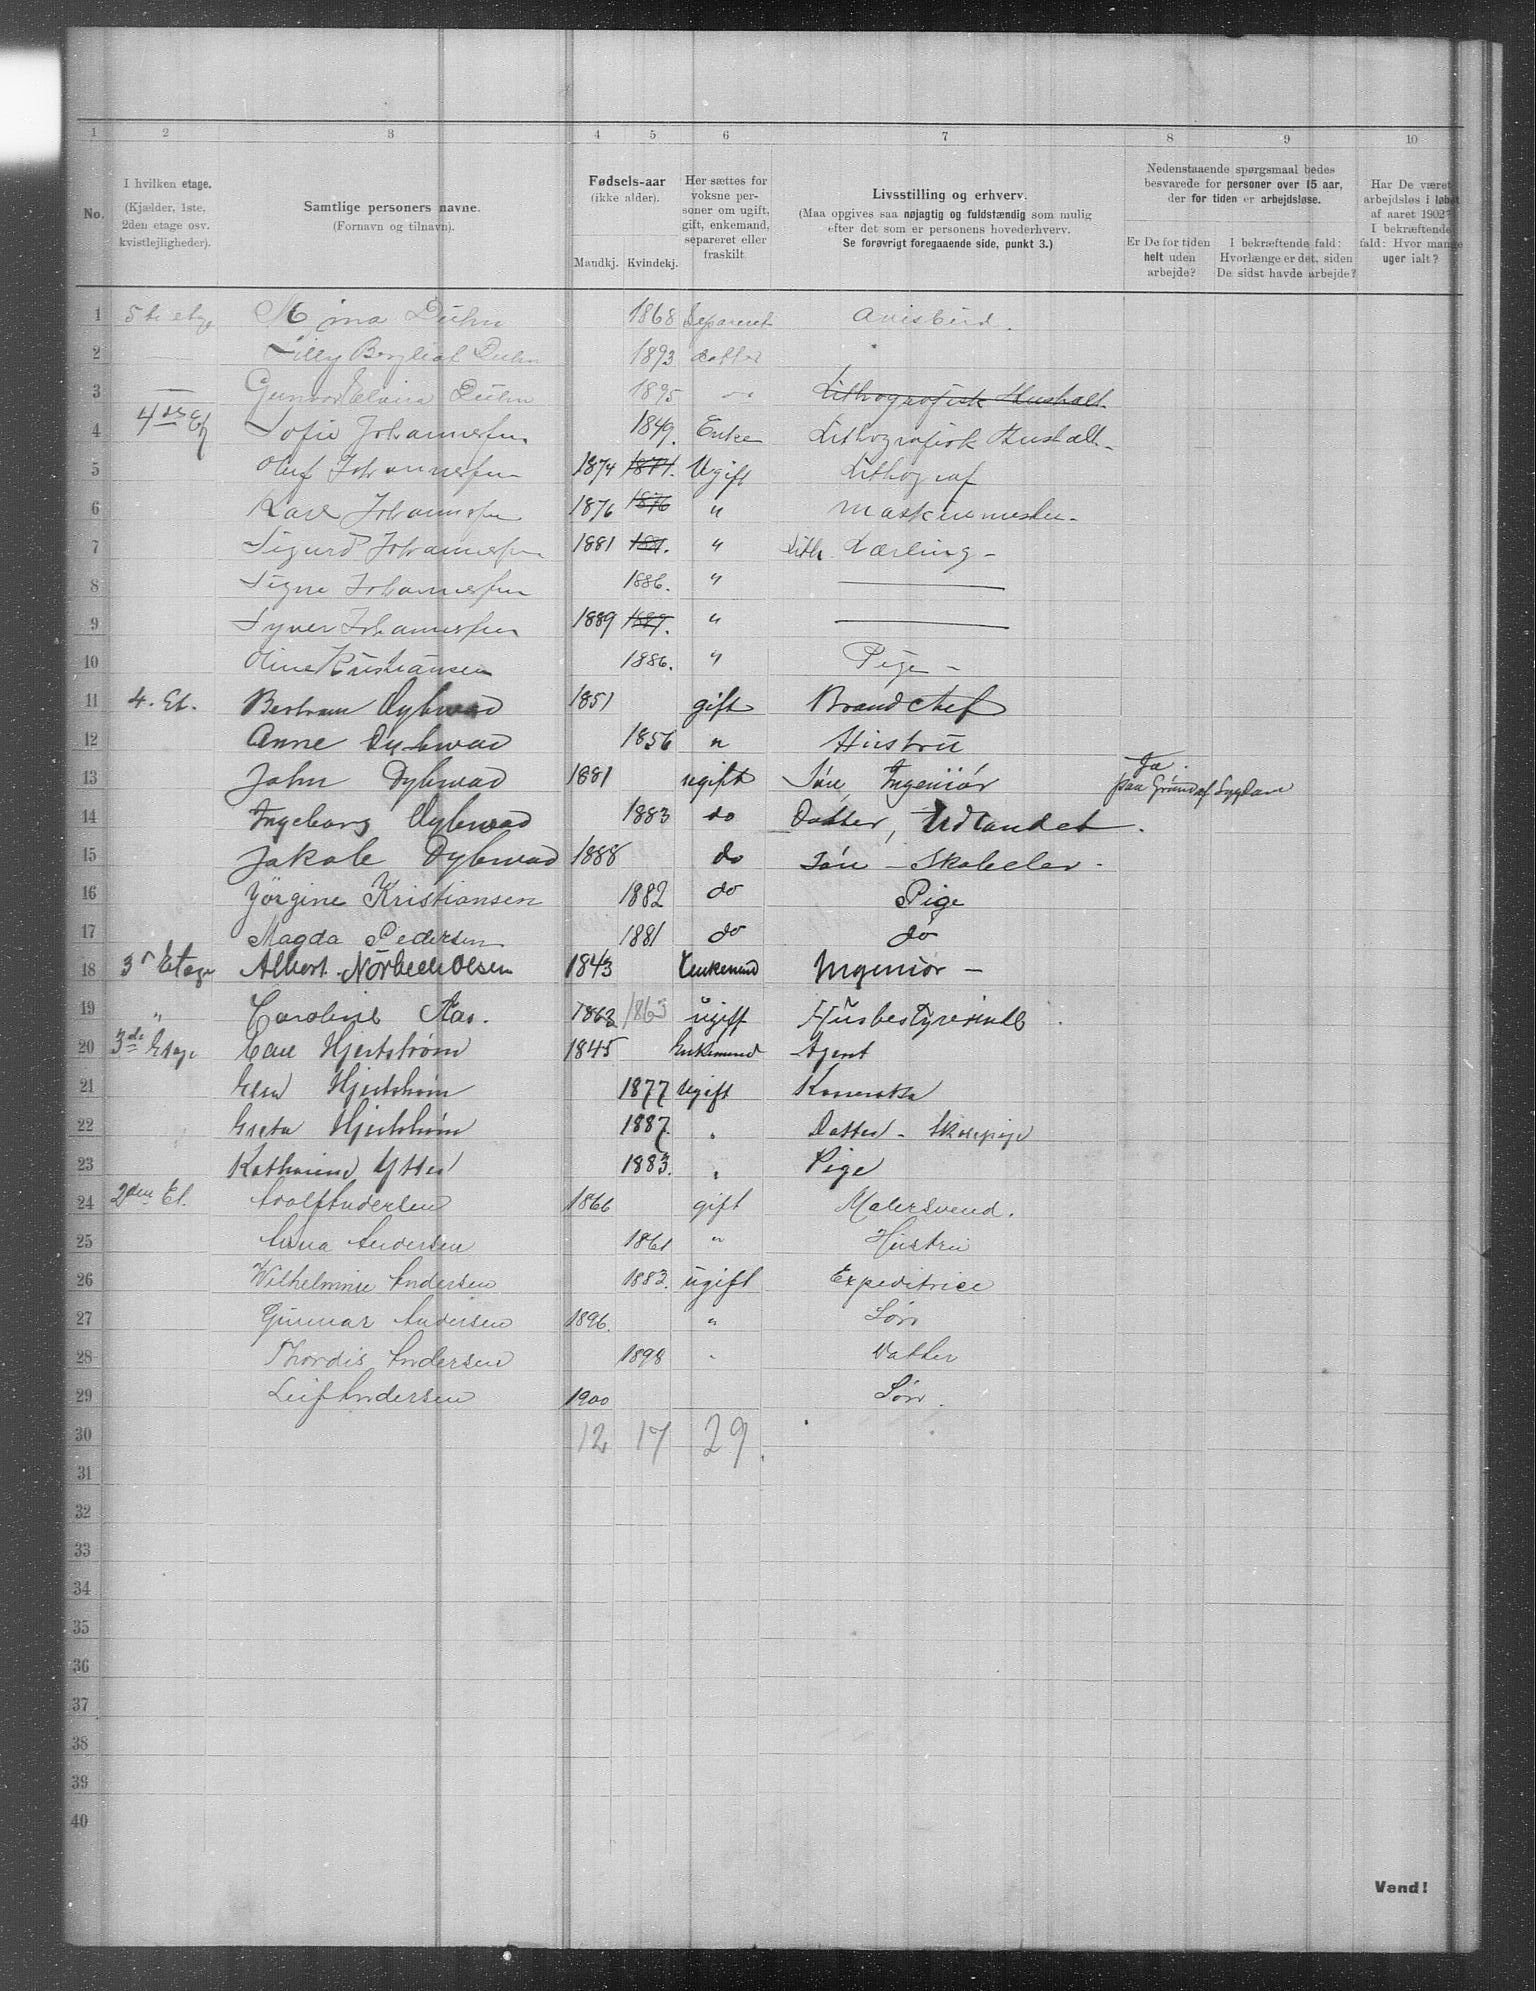 1 2 3 4 5 6 7 8 9 10
No.
I hvilken etage.
(Kjælder, 1ste,
2den etage osv.
kvistlejligheder).
Samtlige personers navne.
(Fornavn og tilnavn).
Fødsels-aar
(ikke alder).
Mandkj. Kvindekj.
Her sættes for
voksne per-
soner om ugift,
gift, enkemand,
separeret eller
fraskilt.
Livsstilling og erhverv.
(Maa opgives saa nøjagtig og fuldstændig som mulig
efter det som er personens hovederhverv.
Se forøvrigt foregaaende side, punkt 3.)
Nedenstaaende spørgsmaal bedes
besvarede for personer over 15 aar,
der for tiden er arbejdsløse.
Er De for tiden
helt uden
arbejde?
I bekræftende fald:
Hvorlænge er det, siden
De sidst havde arbejde?
Har De været
arbejdsløs i løbet
af aaret 1902?
I bekræftende
fald: Hvor mange
uger ialt?
1 5te etage Mina Duhn 1868 Separeret Avisbud.
2 Lilly Bergliot Duhn 1893 datter
3 Gunvor Elvira Duhn 1895 do Lithografisk Hushalt
4 4de Et Sofie Johannessen 1849. Enke Lithografisk Hushalt
5 Oluf Johannessen 1874 1874. Ugift Lithograf
6 Karl Johannessen 1876 1876 " Maskinmester
7 Sigurd Johannessen 1881 1881. " Lith. Lærling
8 Signe Johannessen 1886. "
9 Syver Johannessen 1889 1889. "
10 Oline Kristiansen 1886. " Pige
11 4. Et. Bertram Dybwad 1851 gift Brandchef
12 Anne Dybwad 1856 " Hustru
13 John Dybwad 1881 ugift Søn, Ingeniør Ja. paa Grund af Sygdom
14 Ingeborg Dybwad 1883 do Datter, Udlandet.
15 Jakob Dybwad 1888 do Søn - Skoleelev.
16 Jörgine Kristiansen 1882 do Pige
17 Magda Pedersen 1881 do do
18 3 Etage Albert Norbech Olsen 1843 Enkemand Ingeniør
19 " Caroline Aas. 1863 1863 ugift Husbestyrerinde
20 3de Etage Carl Hjertstrøm 1845 Enkemand Agent
21 Elsa Hjertstrøm 1877 Ugift
22 Greta Hjertstrøm 1887 " Datter - Skolepige
23 Kathrine Ytter 1883. " Pige
24 2den Et. Adolf Andersen 1866 gift Malersvend.
25 Anna Andersen 1861 " Hustru
26 Wilhelmine Andersen 1883. ugift Expeditrice
27 Gunnar Andersen 1896. " Søn
28 Thordis Andersen 1898 " Datter
29 Leif Andersen 1900 Søn.
30 12 17 29.
31
32
33
34
35
36
37
38
39
40
Vend!